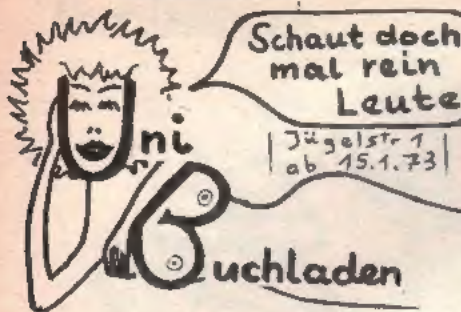 Schaut doch
mal rein
Leute
Jügelstr 1
ab 15.1.73
Uni
Buchladen